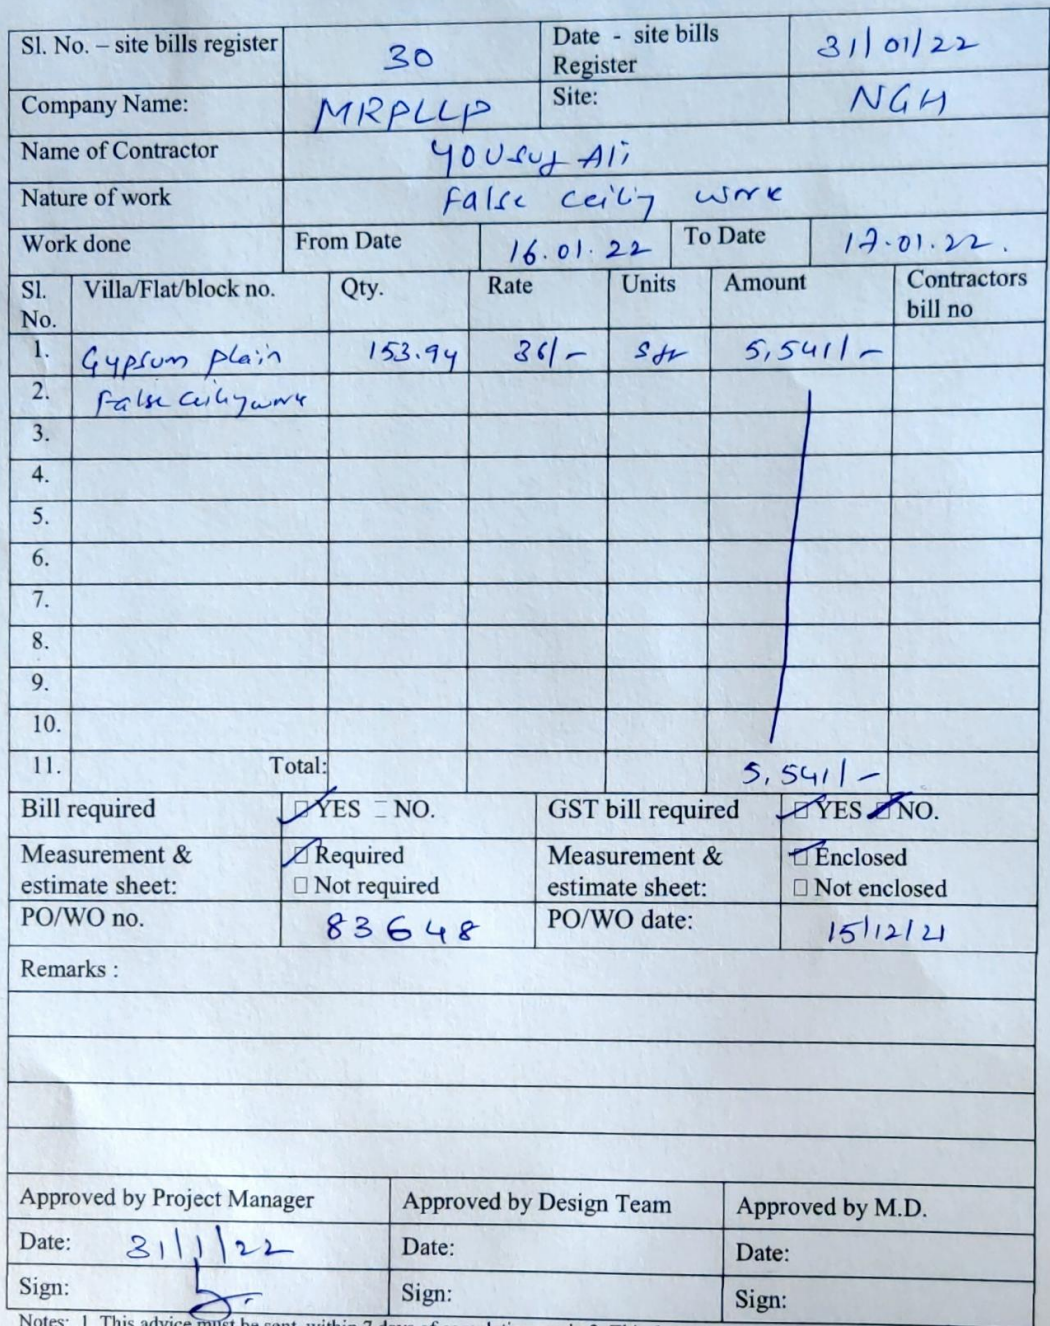 Sl. No. – site bills register 30 Date - site bills Register 31/01/22
Company Name: MRPLLP Site: NGH
Name of Contractor Yousuf Ali
Nature of work False ceiling work
Work done From Date 16.01.22 To Date 17.01.22.
Sl. No. Villa/Flat/block no. Qty. Rate Units Amount Contractors bill no
1. Gypsum plain 153.94 36/- Sft 5,541/-
2. False ceiling work
3.
4.
5.
6.
7.
8.
9.
10.
11. Total: 5,541/-
Bill required ☑ YES □ NO. GST bill required ☑ YES ☑ NO.
Measurement & estimate sheet: ☑ Required □ Not required Measurement & estimate sheet: ☑ Enclosed □ Not enclosed
PO/WO no. 83648 PO/WO date: 15/12/21
Remarks :
Approved by Project Manager Approved by Design Team Approved by M.D.
Date: 31/1/22 Date: Date:
Sign: Sign: Sign:
Notes: 1. This advice must be sent within 7 days of